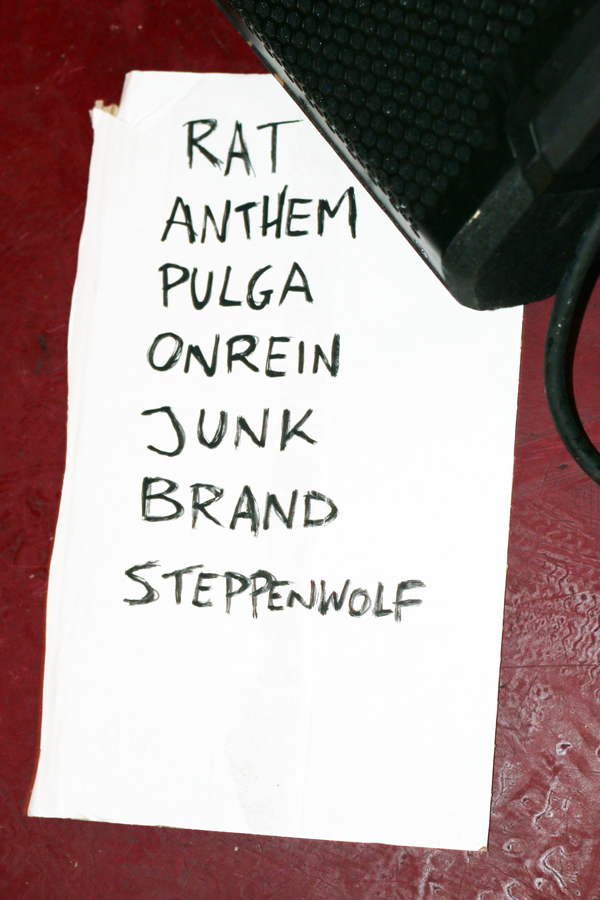 RAT
ANTHEM
PULGA
ONREIN
JUNK
BRAND
STEPPENWOLF